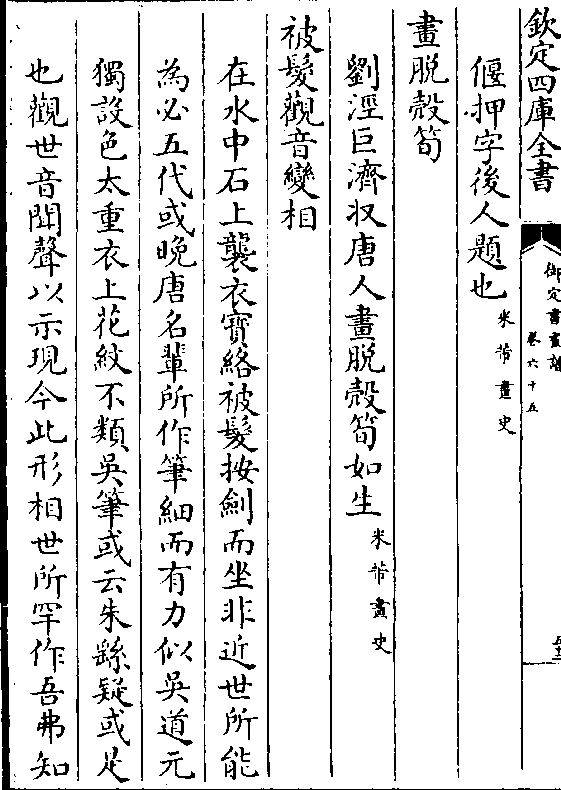 欽定四庫全書
御定書畫譜
卷六十五
偃押字後人題也米芾畫史
畫脱殼筍
劉涇巨濟收唐人畫脱殼筍如生米芾畫史
被髮觀音變相
在水中石上襲衣寳絡被髮按劍而坐非近世所能
為必五代或晩唐名輩所作筆細而有力似吳道元
獨設色太重衣上花紋不類吳筆或云朱繇疑或是
也觀世音聞聲以示現今此形相世所罕作吾弗知